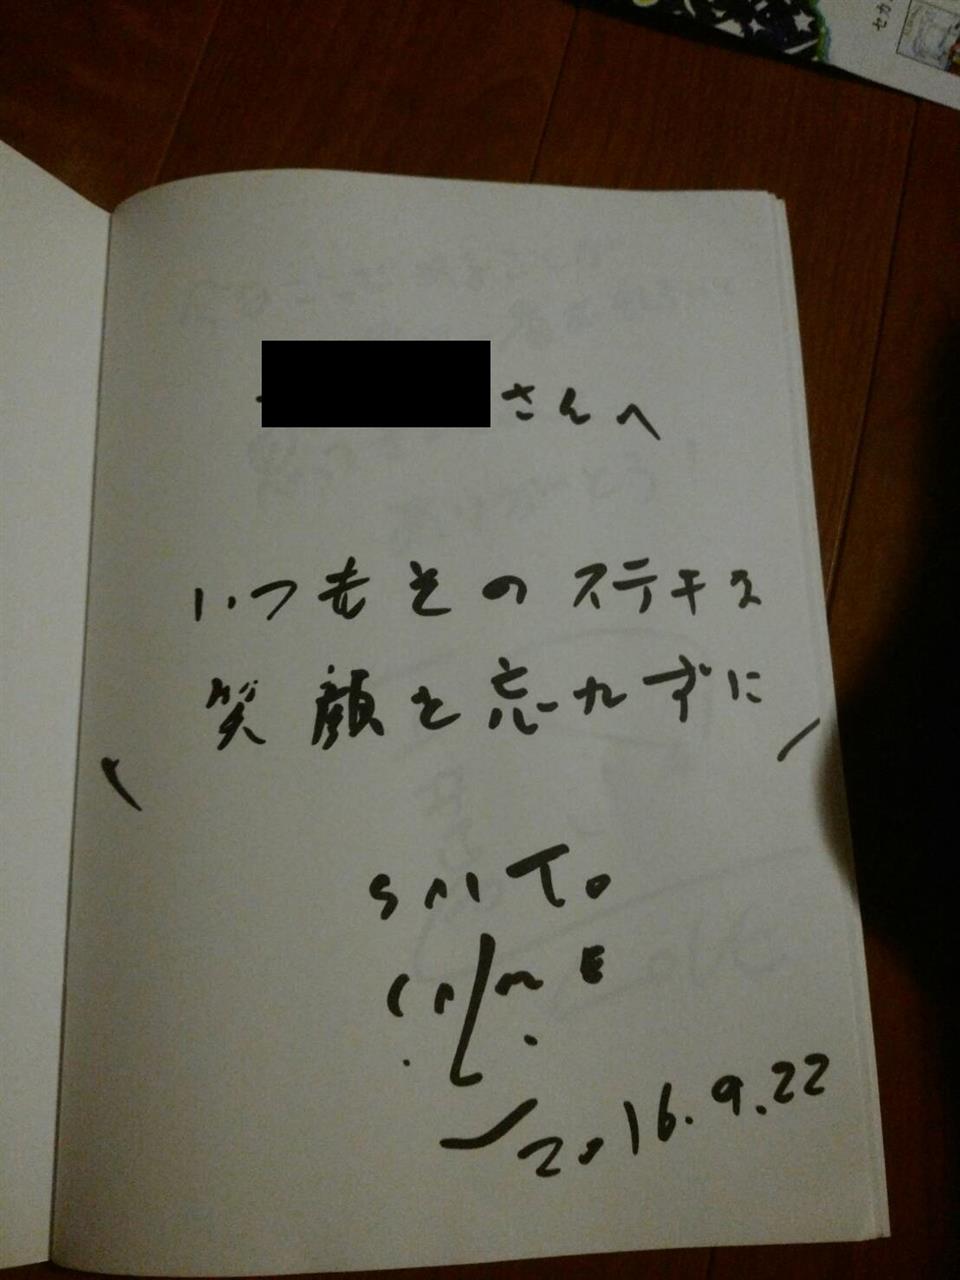 さんへ
いつもそのステキな
笑顔を忘れずに
2016.9.22
セカ